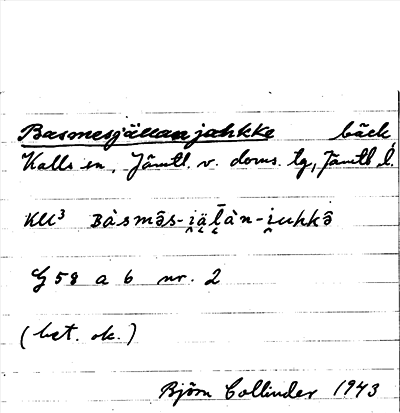 Basmesjällanjahkke bäck
Kalls sn, Jämtl. v. doms. tg, Jämtl. l.
KU³ Bàsmə̑s-i̯ä̭l̄àn-i̯uhkə̑
G 58 a b nr. 2
(bet. ok.)
Björn Collinder 1943